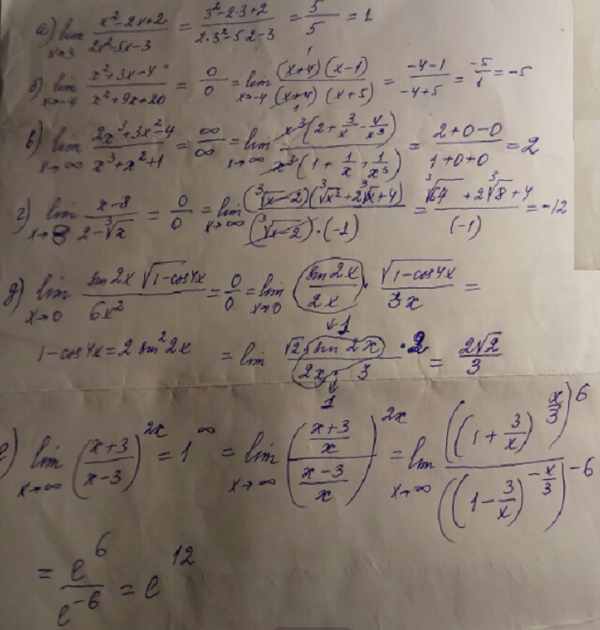 а) lim x→3 (x²-2x+2)/(2x²-5x-3) = (3²-2·3+2)/(2·3²-5·2-3) = 5/5 = 1
б) lim x→-4 (x²+3x-4)/(x²+9x+20) = 0/0 = lim x→-4 ((x+4)(x-1))/((x+4)(x+5)) = (-4-1)/(-4+5) = -5/1 = -5
в) lim x→∞ (2x³+3x²-4)/(x³+x²+1) = ∞/∞ = lim x→∞ (x³(2+3/x-4/x³))/(x³(1+1/x+1/x³)) = (2+0-0)/(1+0+0) = 2
г) lim x→8 (x-8)/(2-∛x) = 0/0 = lim x→∞ ((∛x-2)(∛x²+2∛x+4))/((∛x-2)·(-1)) = (∛64+2∛8+4)/(-1) = -12
д) lim x→0 (sin2x √(1-cos4x))/(6x²) = 0/0 = lim x→0 (sin2x/2x) · √(1-cos4x)/(3x) =
↓1
1-cos4x = 2sin²2x = lim (√2 sin2x)/(2x·3) · 2 = 2√2/3
↓
1
е) lim x→∞ ((x+3)/(x-3))^(2x) = 1^∞ = lim x→∞ (((x+3)/x)/((x-3)/x))^(2x) = lim x→∞ ((1+3/x)^(x/3))^6/((1-3/x)^(-x/3))^(-6)
= e^6/e^(-6) = e^12